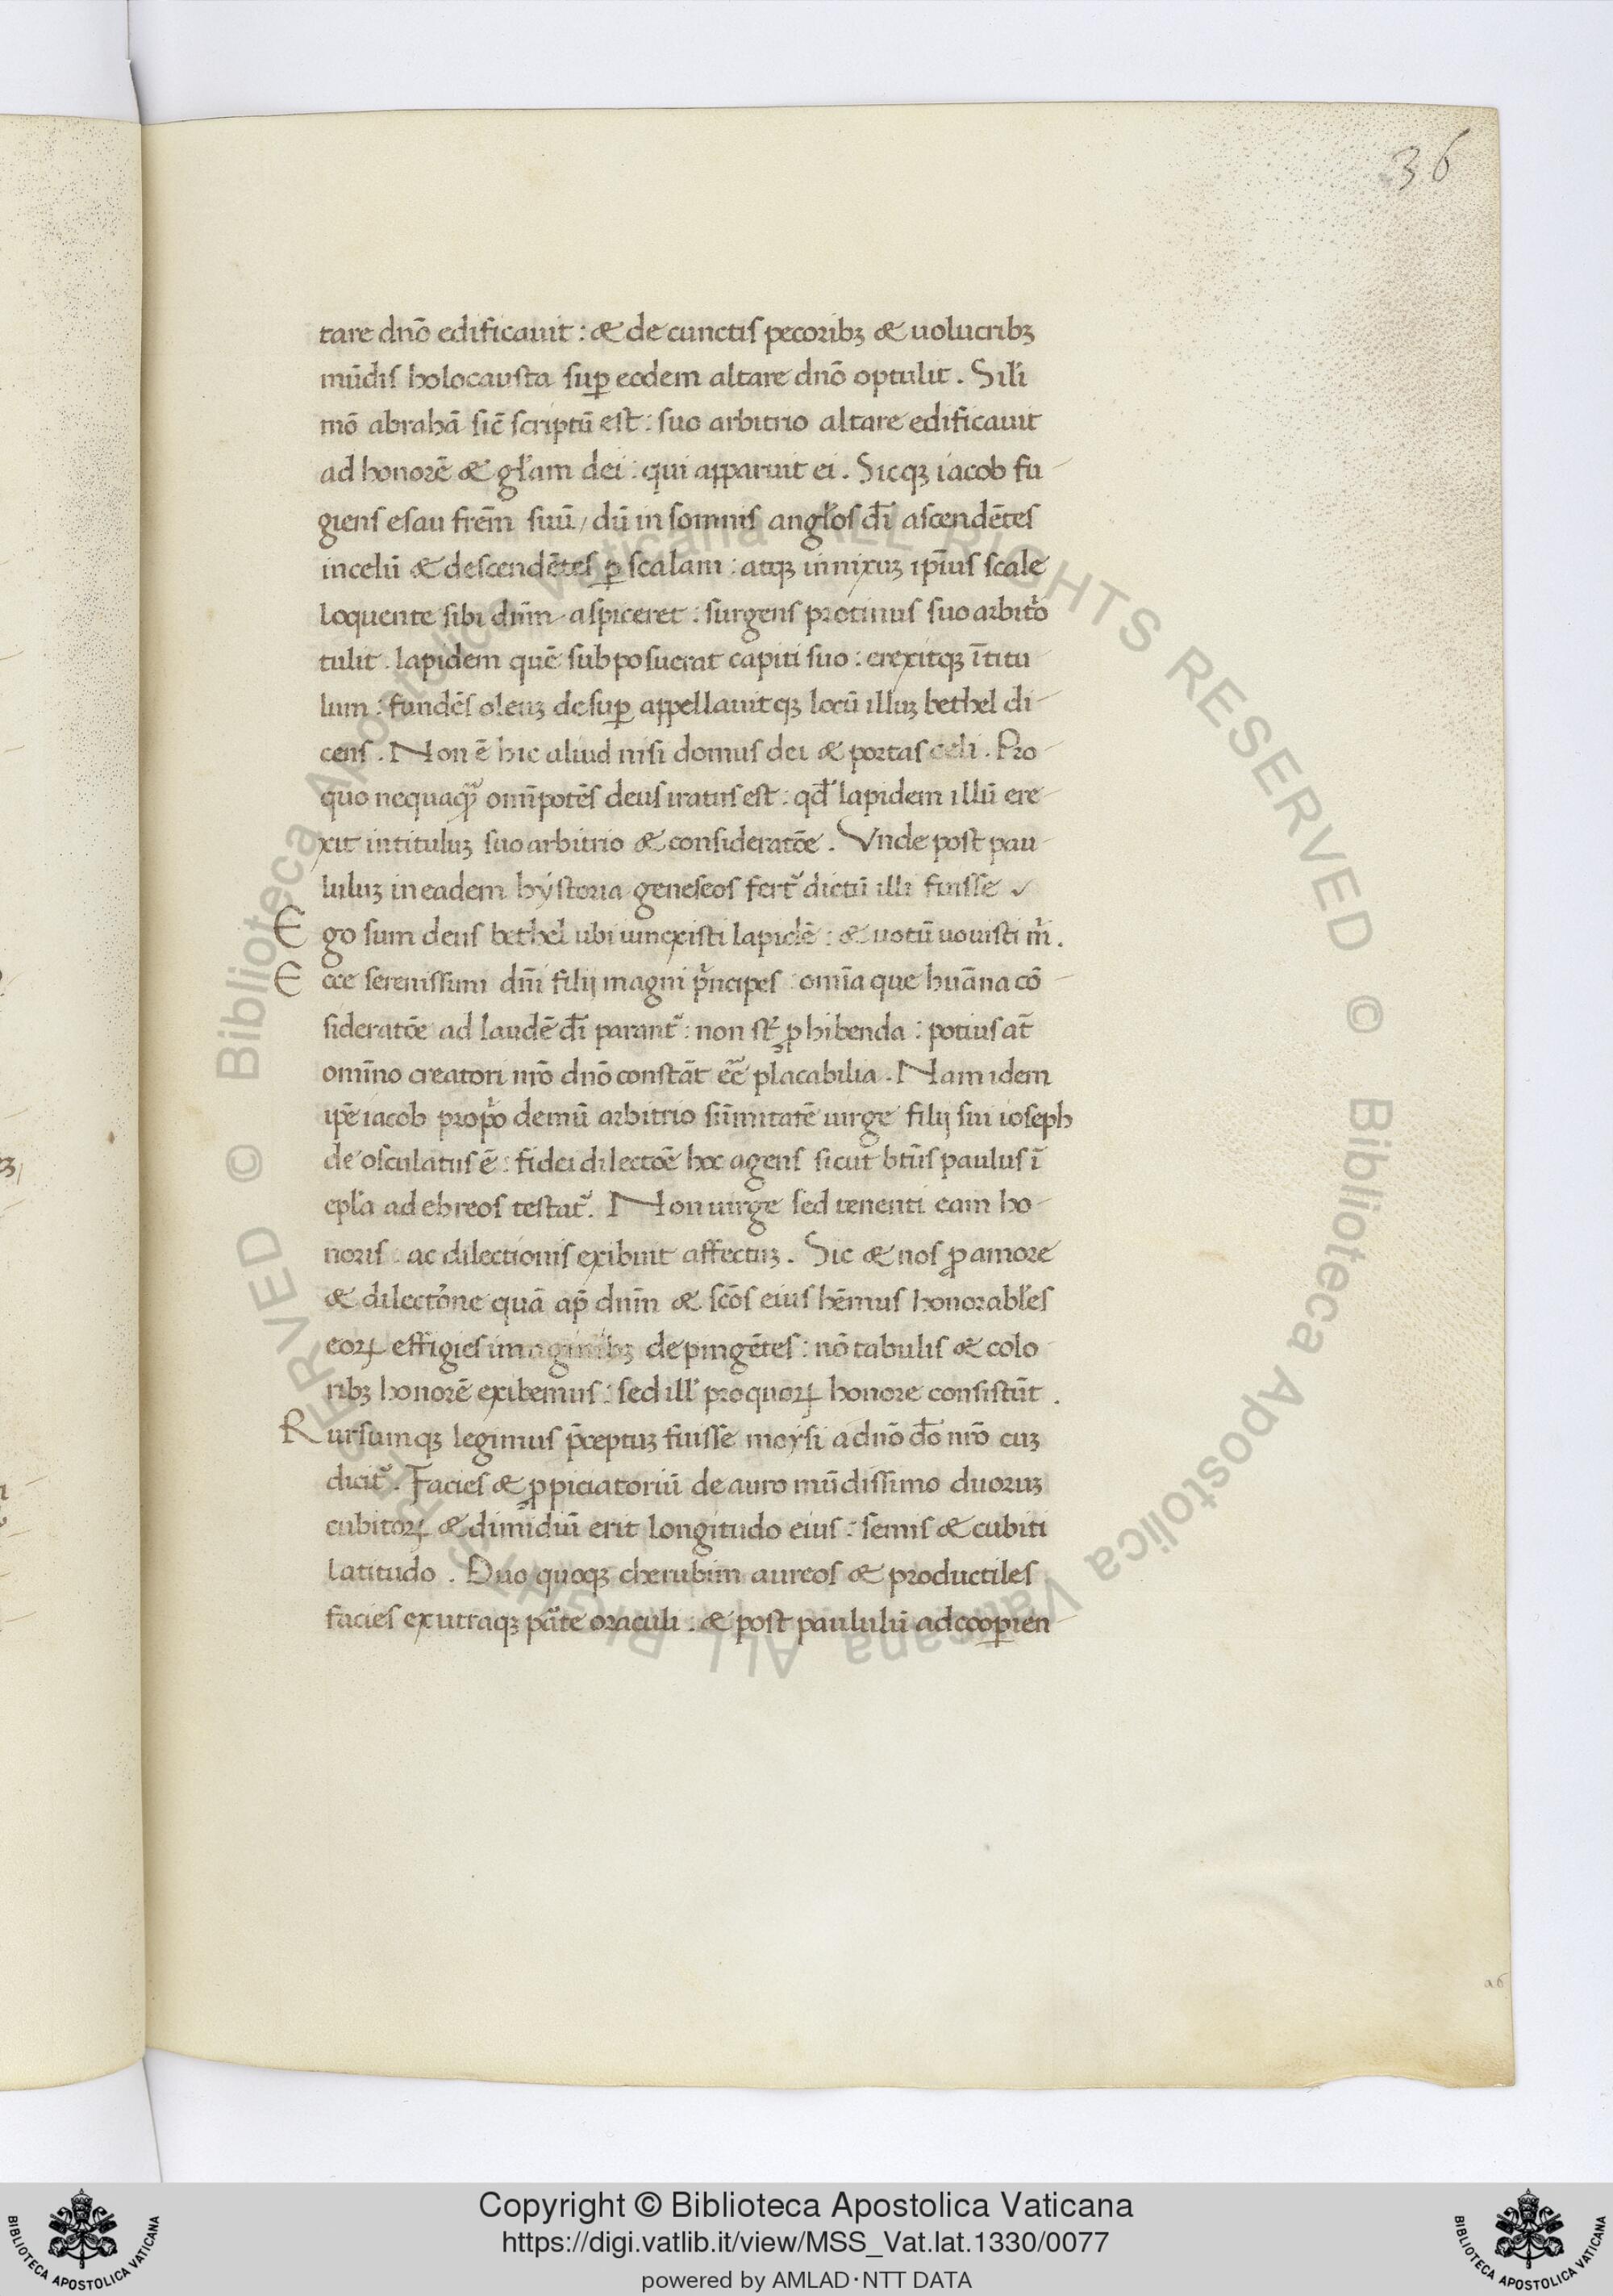 36
tare dnō edificauit : & de cunctis pecoribꝫ & uolucribꝫ
mūdis holocausta suꝑ eodem altare dnō optulit . Sil'i
mō abrahā sic̄ scriptū est : suo arbitrio altare edificauit
ad honorē & gl'am dei : qui apparuit ei . Sicqꝫ iacob fu-
giens esau frēm suū / dū in somnis angl'os dī ascendētes
in celū & descendētes ꝑ scalam : atqꝫ innixuꝫ ip̄ius scale
loquente sibi dnm̄ aspiceret : surgens protinus suo arbitͥo
tulit lapidem quē subposuerat capiti suo : erexitqꝫ ī titu
lum : fundēs oleuꝫ desuꝑ appellauitqꝫ locū illuꝫ bethel di-
cens . Non ē hic aliud nisi domus dei & portas celi . Pro-
quo nequaqᷓ omīpotēs deus iratus est : qd' lapidem illū ere-
xit in tituluꝫ suo arbitrio & consideratōe . Vnde post pau-
luluꝫ in eadem hystoria geneseos fert᷑ dictū illi fuisse
Ego sum deus bethel ubi uinxisti lapidē : & uotū uouisti m̄i .
Ecce serenissimi dnī filij magni pͥncipes : omīa que huāna cō-
sideratōe ad laudē dī parant᷑ : non st̄ ꝓhibenda : potius at̄
omīno creatori nrō dnō constāt eē placabilia . Nam idem
ipē iacob propͥo demū arbitrio sūmitatē uirge filij sui ioseph
de osculatus ē : fidei dilectōe hoc agens sicut btūs paulus ī
epl'a ad ebreos testat᷑ . Non uirge sed tenenti eam ho-
noris ac dilectionis exibuit affectuꝫ . Sic & nos ꝓ amore
& dilectōne quā ap̄ dnm̄ & scōs eius hēmus honorabl'es
eoꝝ effigies imaginibꝫ depingētes : nō tabulis & colo
ribꝫ honorē exibemus : sed ill' pro quoꝝ honore consistūt .
Rursumqꝫ legimus p̄ceptuꝫ fuisse moysi a dnō dō nrō cuꝫ
dicit᷑ . Facies & ꝓpiciatoriū de auro mūdissimo duoruꝫ
cubitoꝝ & dimidiū erit longitudo eius : semis & cubiti
latitudo . Duo quoqꝫ cherubim aureos & productiles
facies ex utraqꝫ pāte oraculi : & post paululū adcooꝑien-
Copyright © Biblioteca Apostolica Vaticana
https://digi.vatlib.it/view/MSS_Vat.lat.1330/0077
powered by AMLAD·NTT DATA
BIBLIOTECA APOSTOLICA VATICANA
BIBLIOTECA APOSTOLICA VATICANA
© Biblioteca Apostolica Vaticana ALL RIGHTS RESERVED © Biblioteca Apostolica Vaticana ALL RIGHTS RESERVED